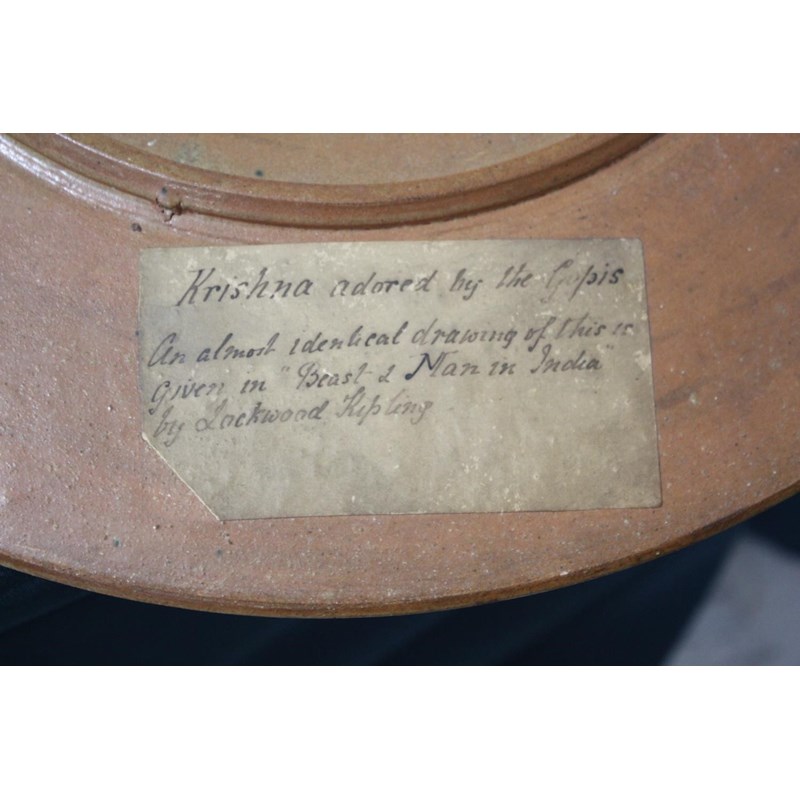 Krishna adored by the Gopis
An almost identical drawing of this is
given in "Beast & Man in India"
by Lockwood Kipling